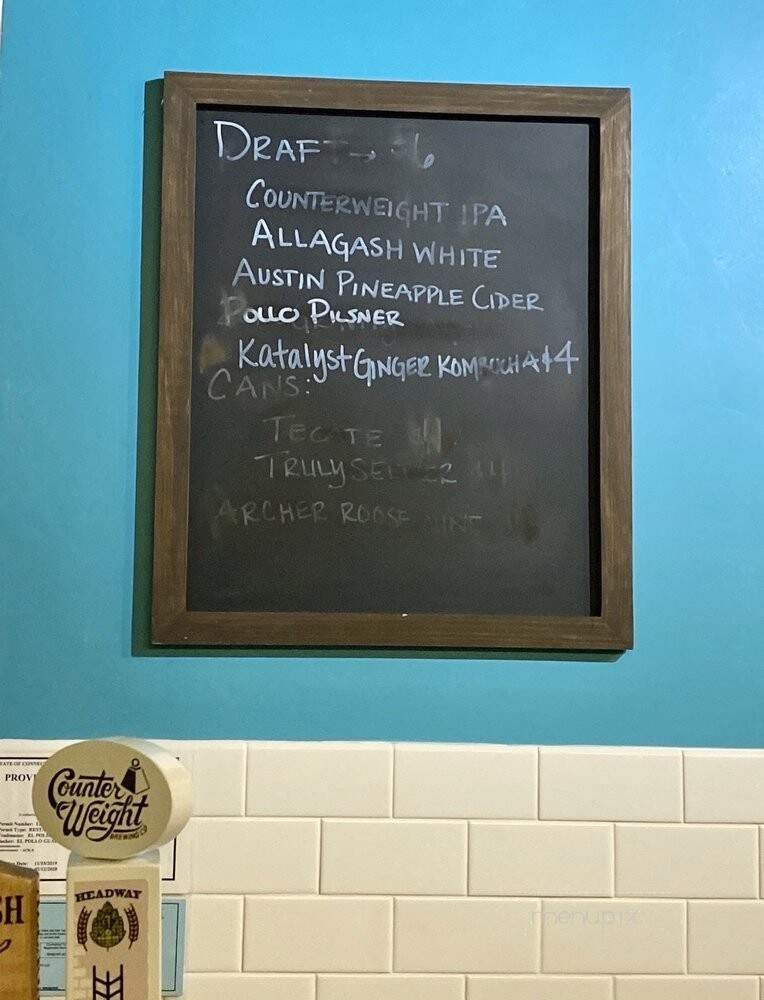 DRAFT → $6
COUNTERWEIGHT IPA
ALLAGASH WHITE
AUSTIN PINEAPPLE CIDER
POLLO PILSNER
Katalyst GINGER KOMBUCHA $4
CANS:
TECATE $4
TRULY SELTZER $4
ARCHER ROOSE
STATE OF CONNEC
PROVI
Counter
Weight
BREWING CO
HEADWAY
SH
menupix